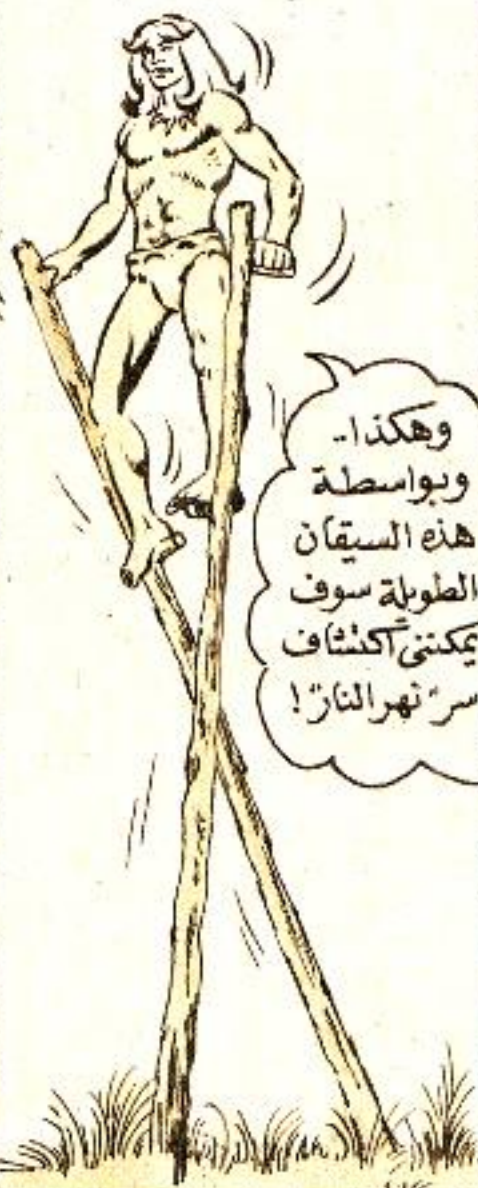 وهكذا..
وبواسطة
هذه السيقان
الطويلة سوف
يمكننى اكتشاف
سر "نهر النار"!